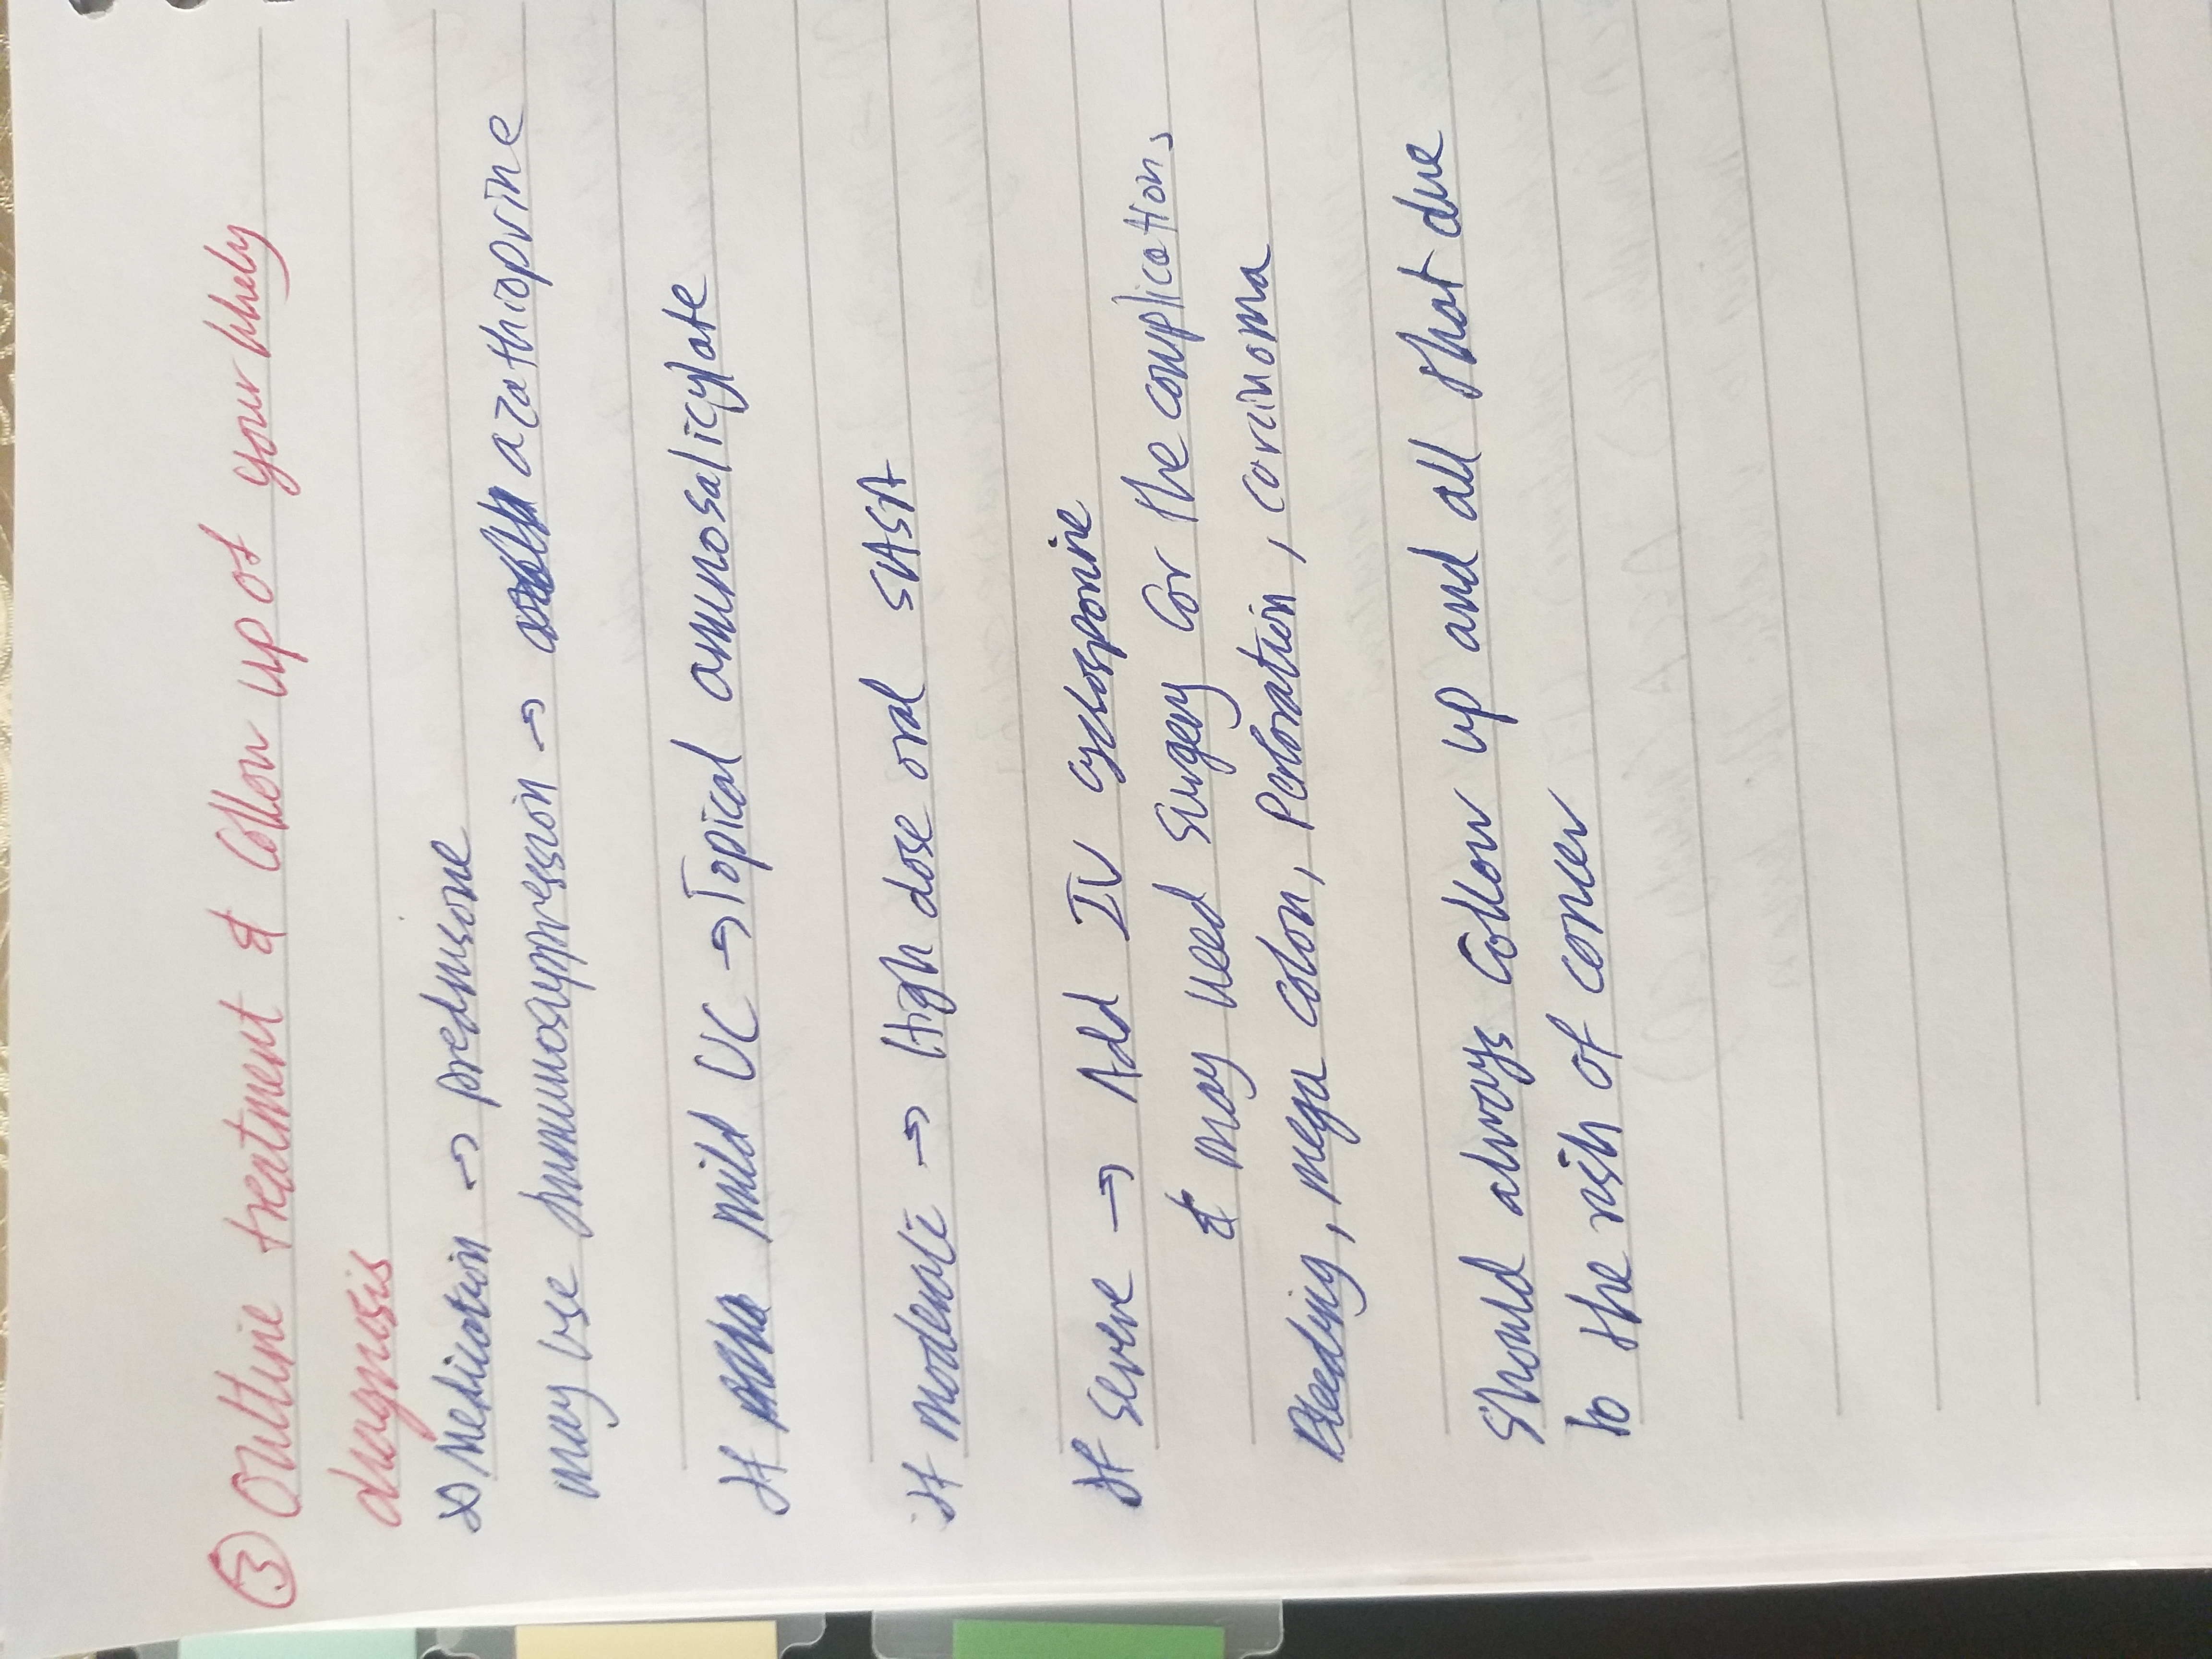 ③ Outline treatment & follow up of your likely
diagnosis
Medication → prednisone
may use immunosuppression → azathioprine
If mild UC → Topical aminosalicylate
if moderate → High dose oral 5ASA
If severe → Add IV cyclosporine
& may need surgery for the complications
Bleeding, mega colon, Perforation, carcinoma
Should always follow up and all that due
to the risk of cancer